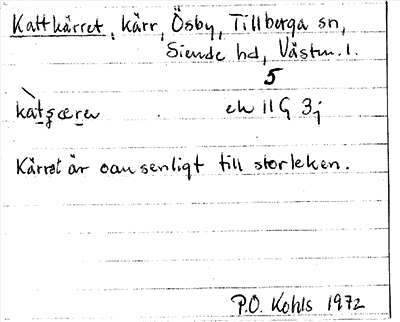 Kattkärret, kärr, Ösby, Tillberga sn,
Siende hd, Västm. l.
5
ek 11G 3j
Kärret är oansenligt till storleken.
P.O. Kohls 1972